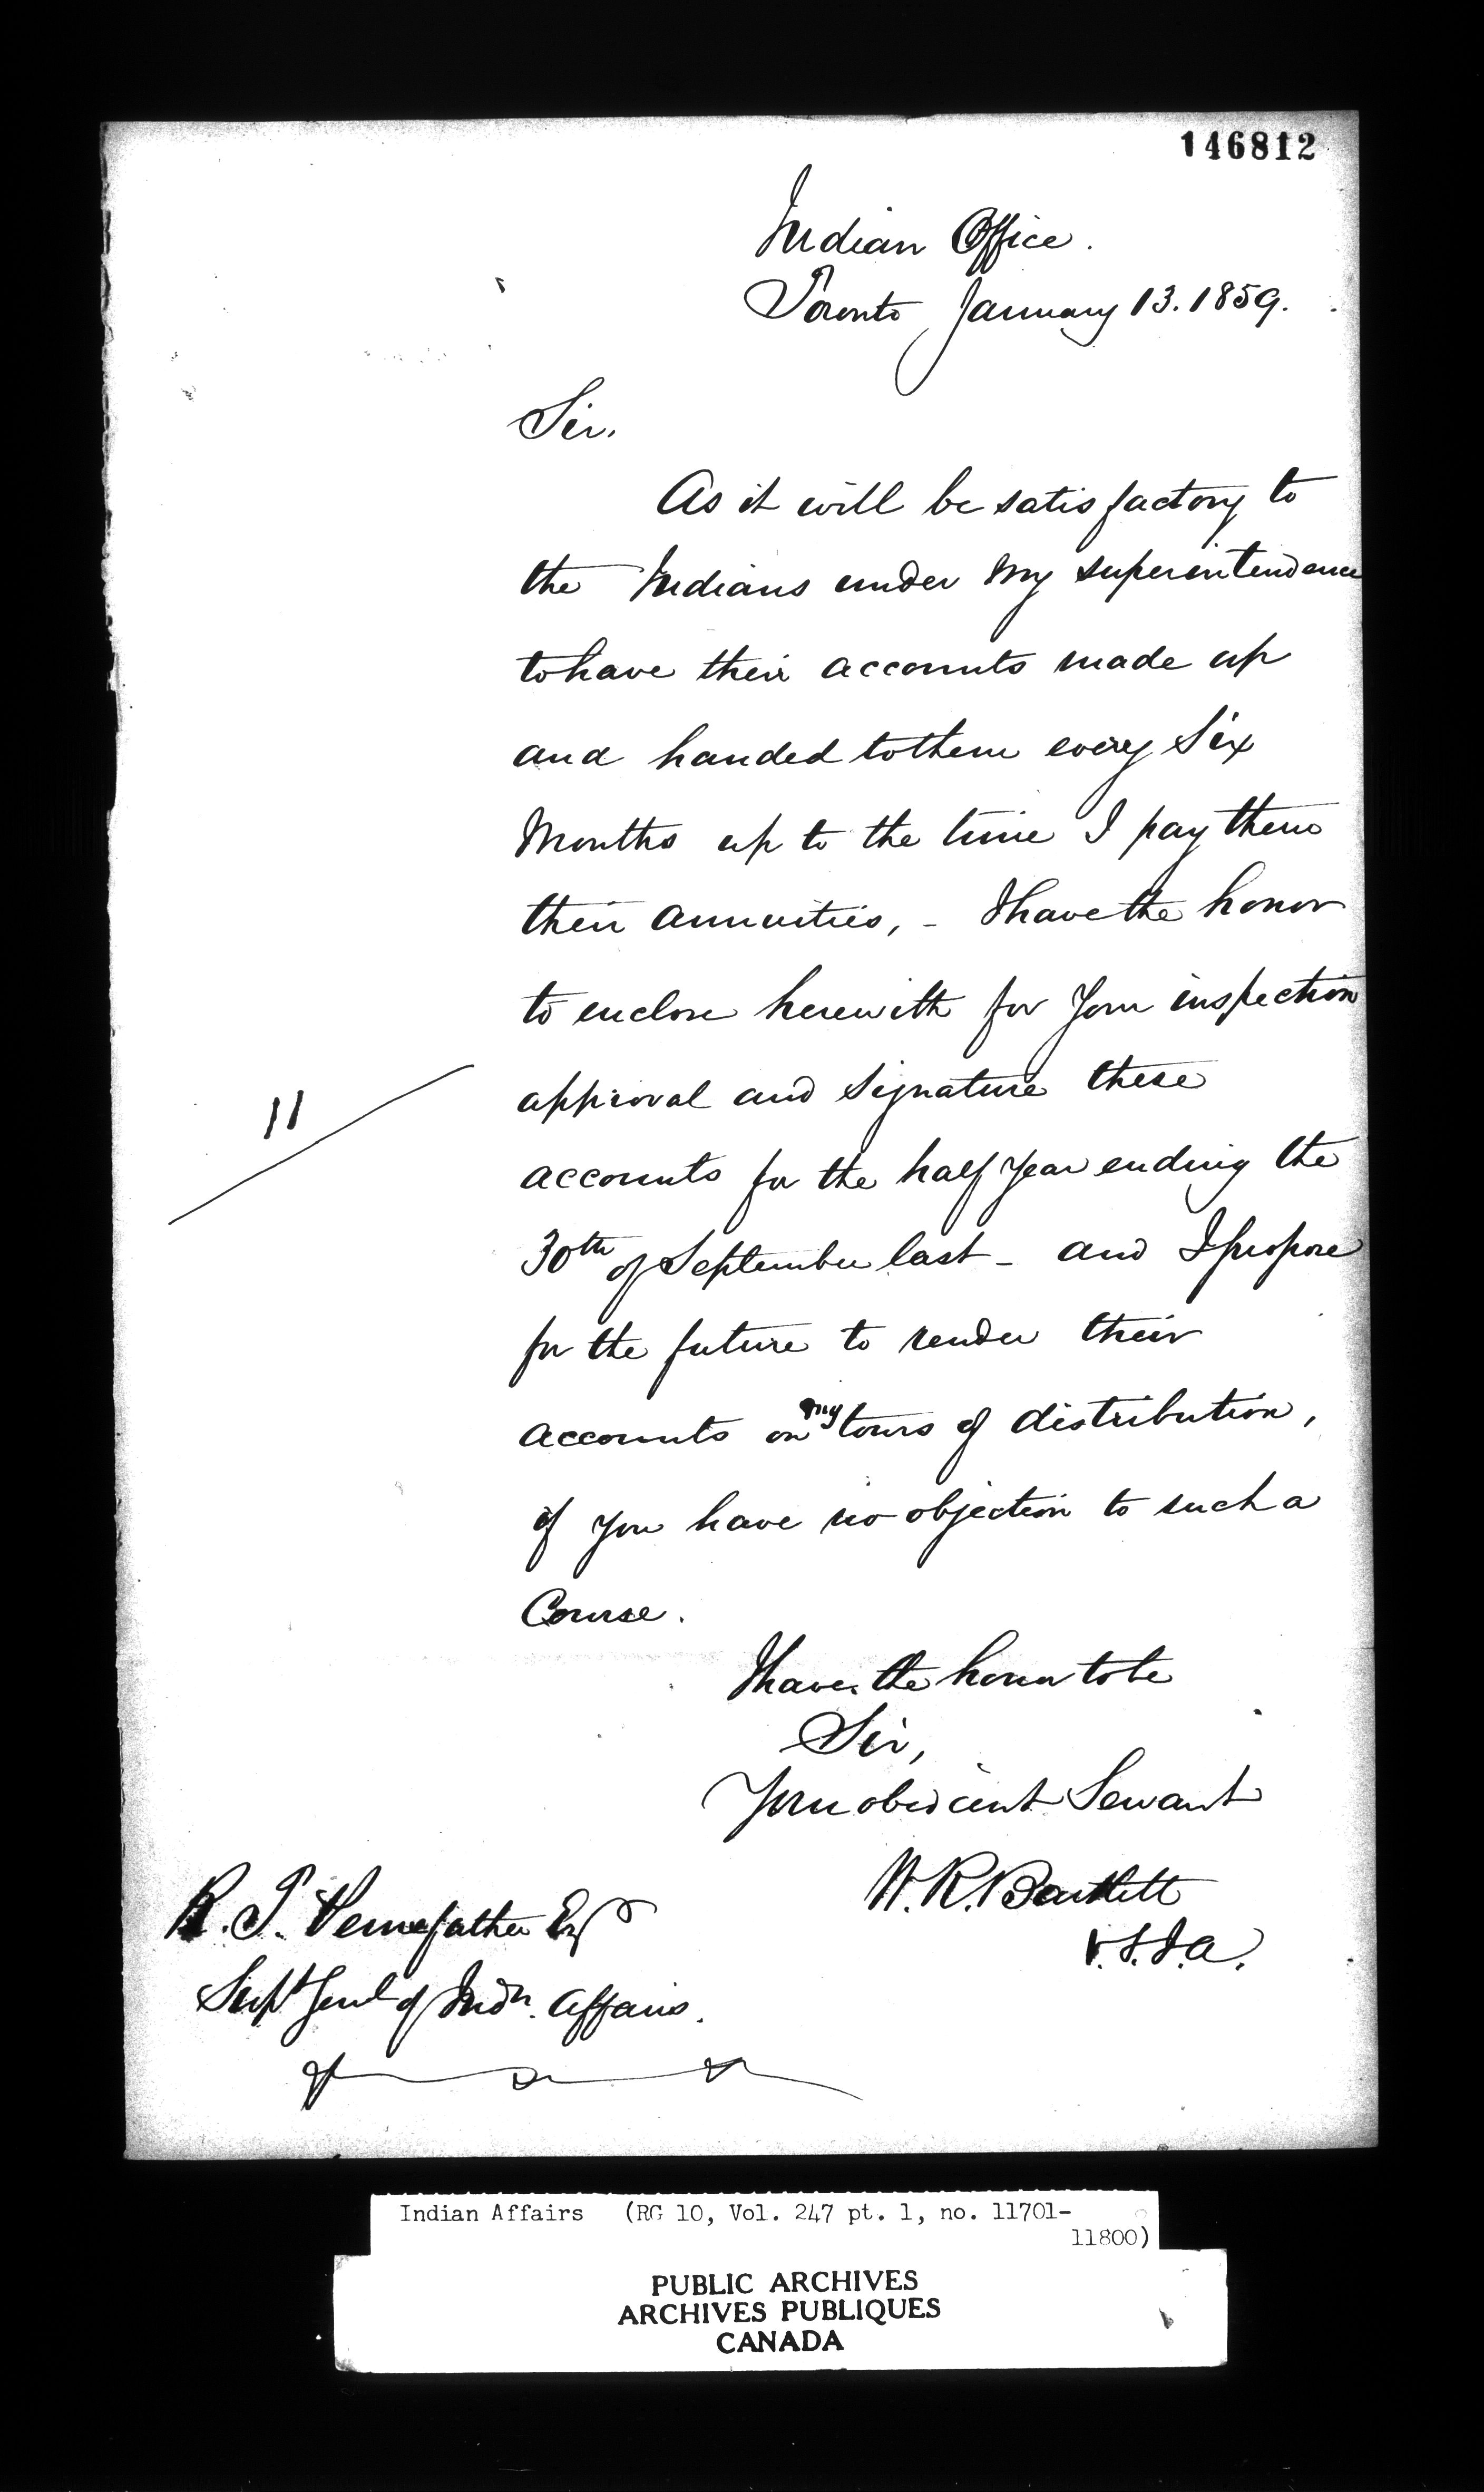 146812
Indian Office.
Toronto January 13. 1859.
Sir,
As it will be satisfactory to
the Indians under my superintendence
to have their accounts made up
and handed to them every Six
Months up to the time I pay them
their annuities, - I have the honor
to enclose herewith for Your inspection
approval and signature these
accounts for the half year ending the
30th of September last - and I propose
for the future to render their
accounts on my tours of distribution,
if you have no objection to such a
Course.
I have the honor to be
Sir,
Your obedient Servant
W. R. Bartlett
V.S.I.A.
11
R. T. Pennefather Esq
Supt Genl of Indn. Affairs.
Indian Affairs (RG 10, Vol. 247 pt. 1, no. 11701-
11800)
PUBLIC ARCHIVES
ARCHIVES PUBLIQUES
CANADA